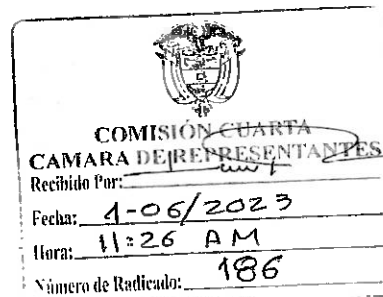 COMISIÓN CUARTA
CAMARA DE REPRESENTANTES
Recibido Por:
Fecha: 1-06/2023
Hora: 11:26 AM
Número de Radicado: 186